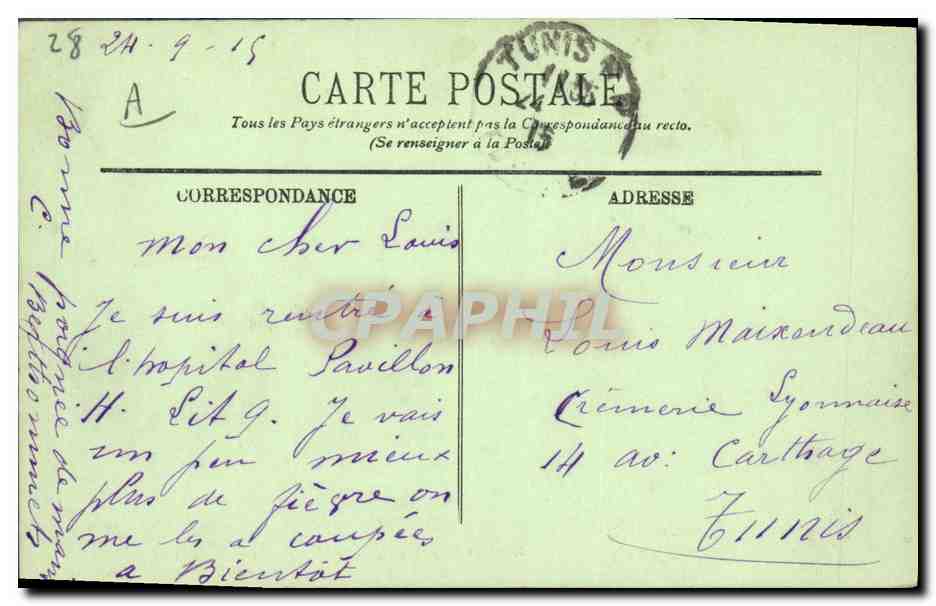 28 24-9-15
A
TUNIS
15
CARTE POSTALE
Tous les Pays étrangers n'acceptent pas la Correspondance au recto.
(Se renseigner à la Poste)
CORRESPONDANCE
mon cher Louis
Je suis rentré à
l'hopital Pavillon
H. Lit 9. Je vais
un peu mieux
plus de fièvre on
me les a coupées
a Bientôt
Bonne poignée de main
C.
ADRESSE
Monsieur
Louis Maixandeau
Crèmerie Lyonnaise
14 av: Carthage
Tunis
CPAPHIL